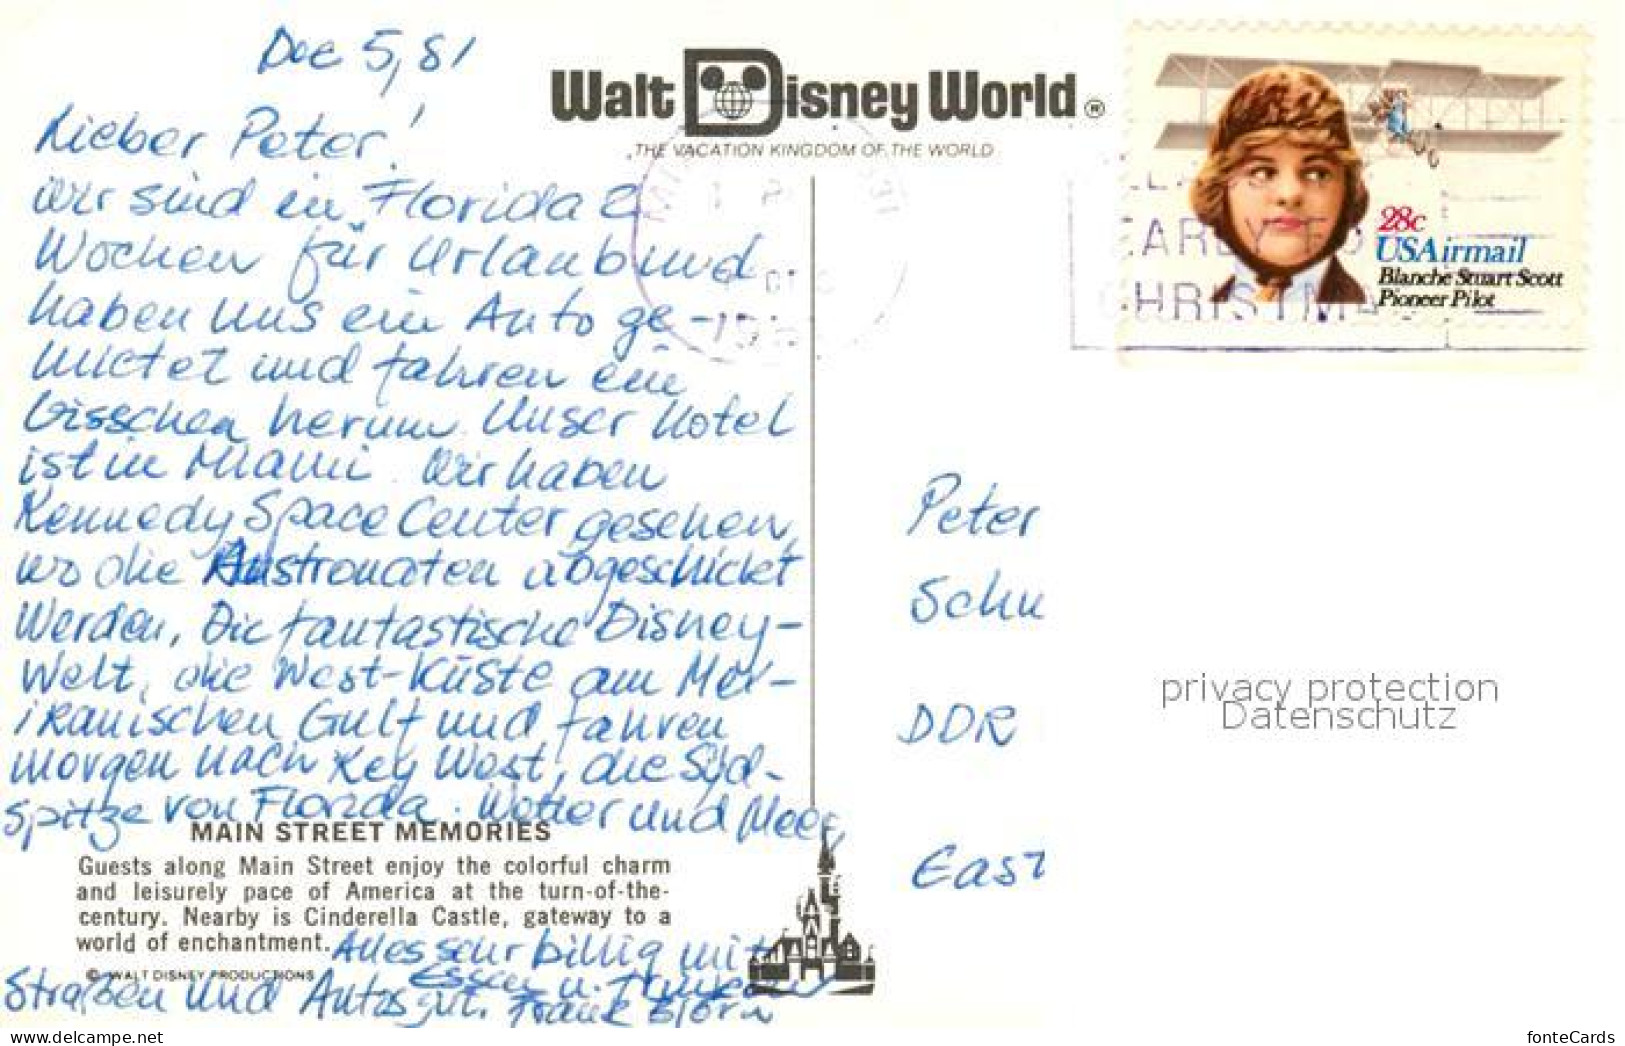 Dec 5, 81
Walt Disney World ®
THE VACATION KINGDOM OF THE WORLD
28c
USAirmail
Blanche Stuart Scott
Pioneer Pilot
EARLY FO
CHRISTMA
Lieber Peter!
Wir sind in Florida 2
Wochen für Urlaub und
haben uns ein Auto ge-
mietet und fahren ein
bisschen herum. Unser Hotel
ist in Miami. Wir haben
Kennedy Space Center gesehen,
wo die Austronaten abgeschickt
werden, Die fantastische Disney-
Welt, die West-Küste am Mex-
ikanischen Gulf und fahren
morgen nach Key West, die Süd-
spitze von Florida. Wetter und Meer,
MAIN STREET MEMORIES
Guests along Main Street enjoy the colorful charm
and leisurely pace of America at the turn-of-the-
century. Nearby is Cinderella Castle, gateway to a
world of enchantment. Alles sehr billig mit
© WALT DISNEY PRODUCTIONS Essen u.
Straßen und Autos gut. Frank Björn
Peter
Schu
DDR
East
privacy protection
Datenschutz
www.delcampe.net
fonteCards